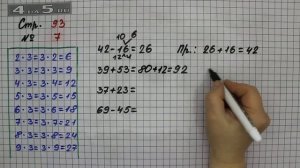 Стр. 93
№ 7
2·3=3·2=6
3·3=3·3=9
4·3=3·4=12
5·3=3·5=15
6·3=3·6=18
7·3=3·7=21
8·3=3·8=24
9·3=3·9=27
10 6
42-16=26
39+53=80+12=92
37+23=
69-45=
Пр.: 26+16=42